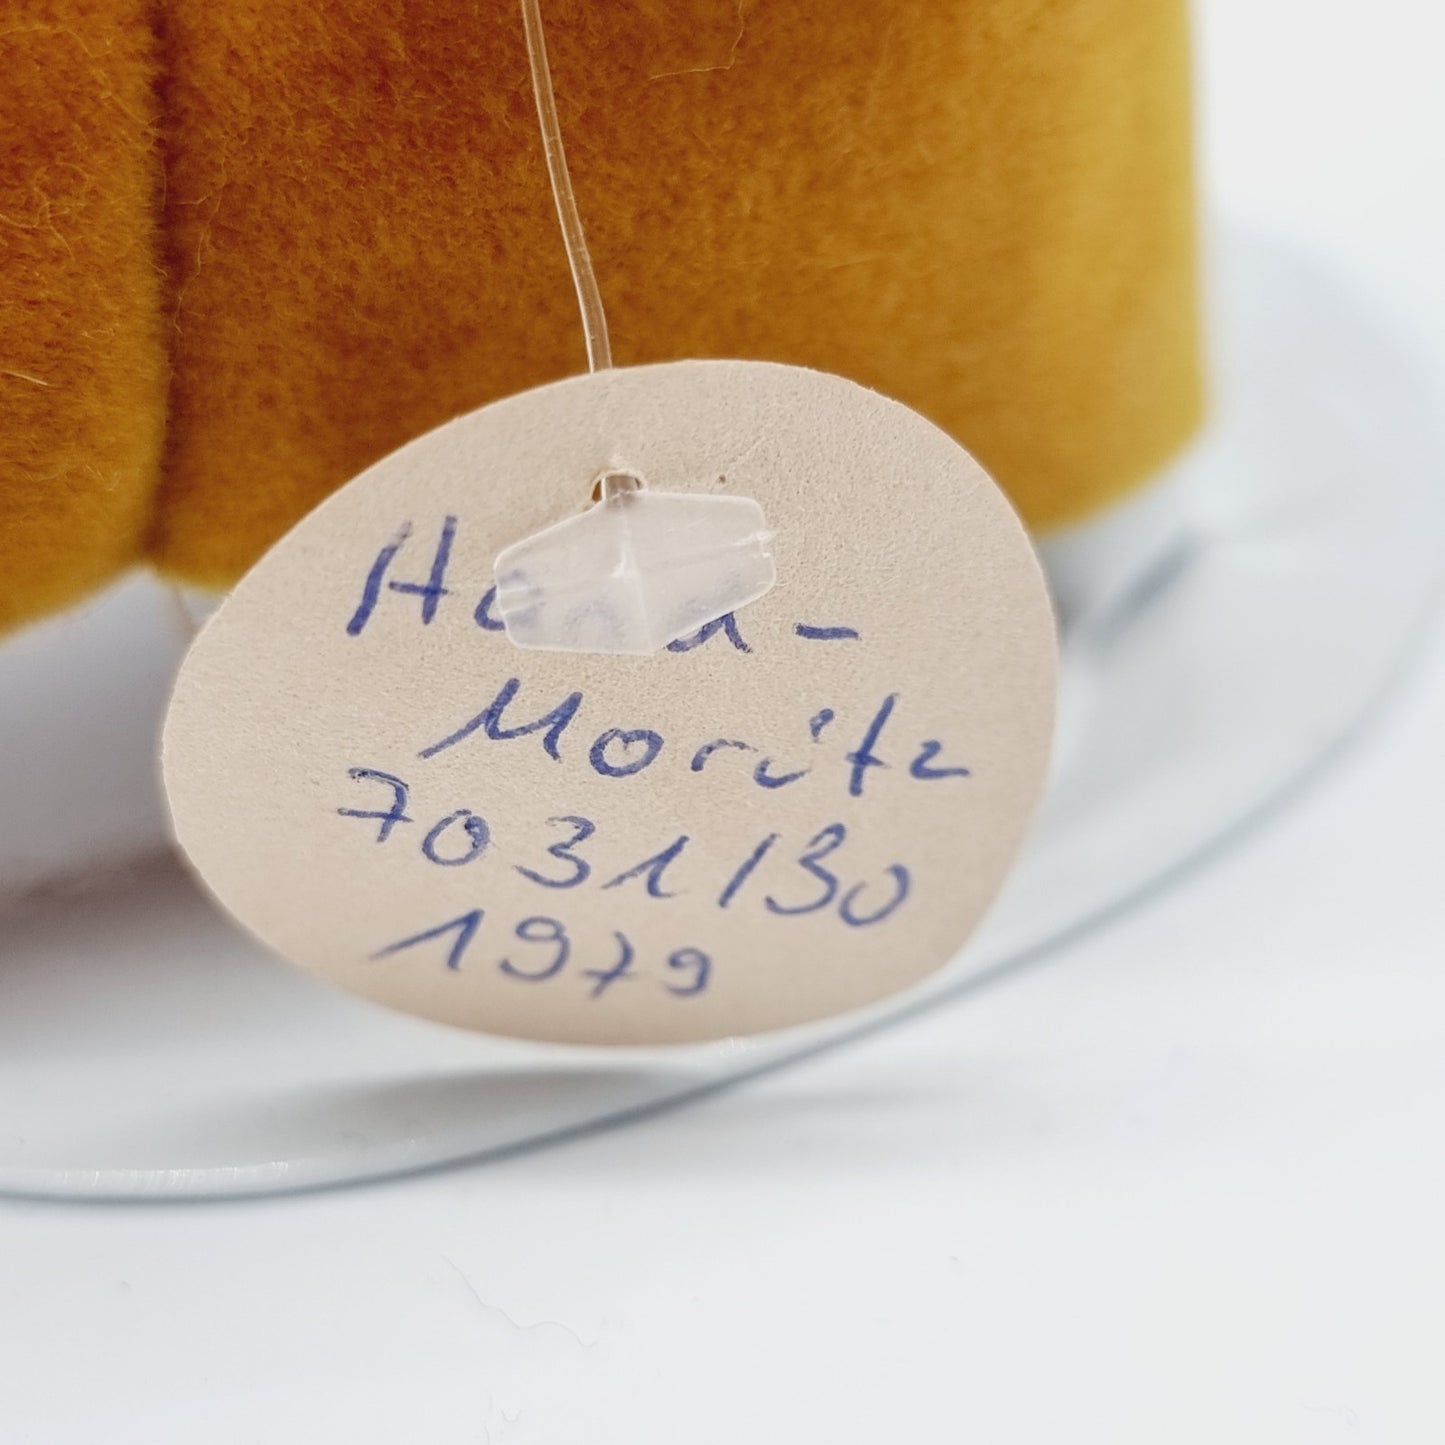 Moritz
7031/30
1979